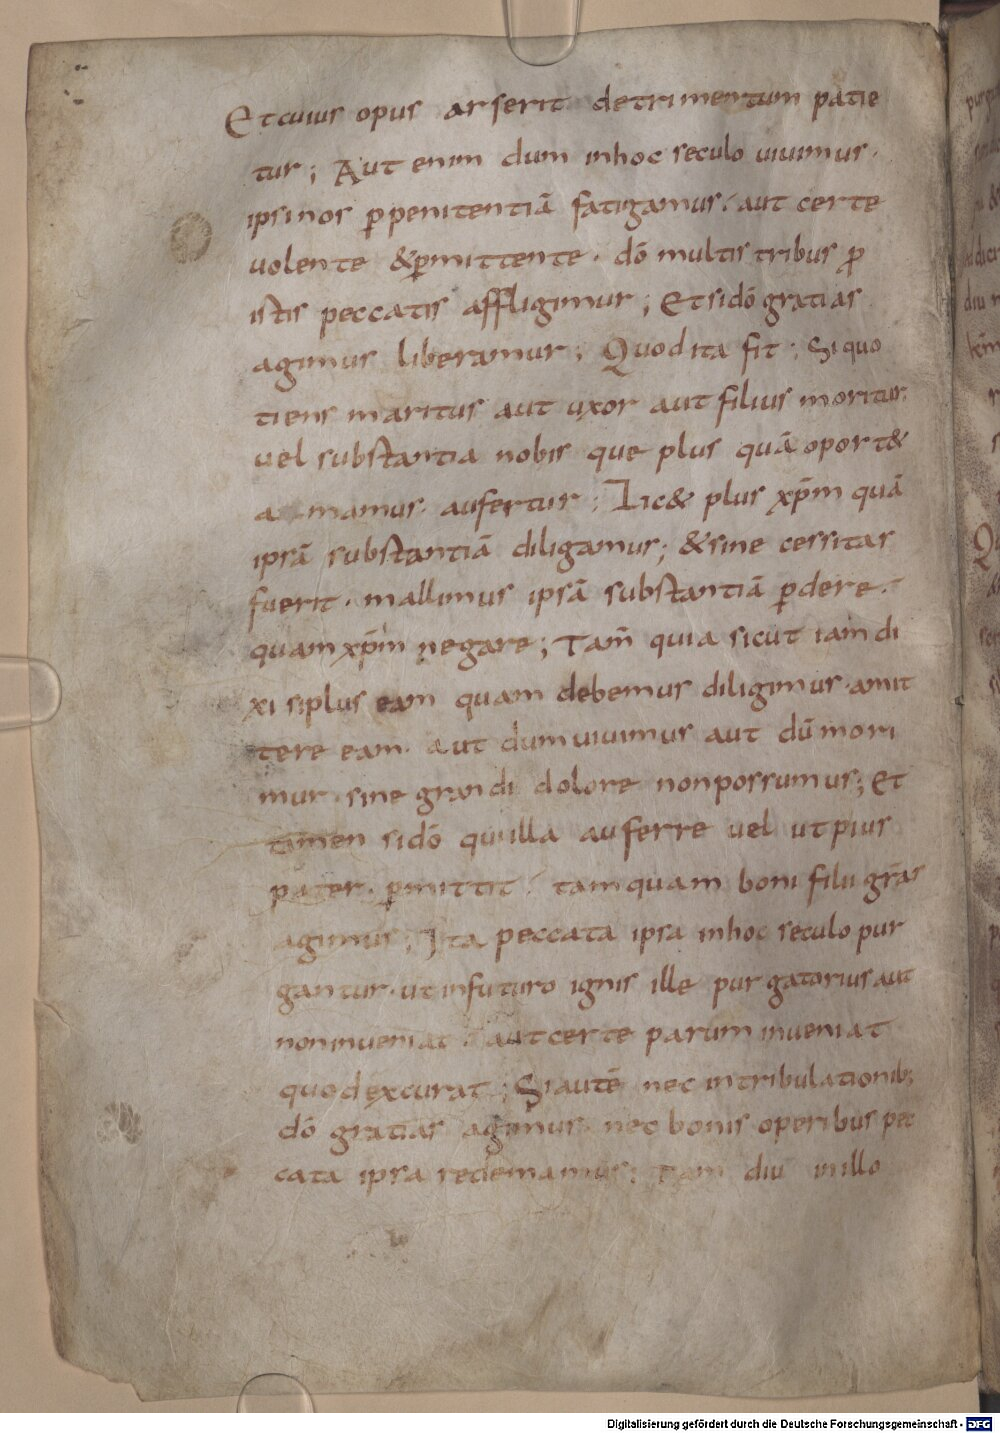 Et cuius opus arserit detrimentum patie
tur; Aut enim dum inhoc seculo uiuimus.
ipsi nos ꝑ penitentiā fatigamus. aut certe
uolente &ꝑmittente. dō multis tribus ꝓ
istis peccatis affligimur; Et si dō gratias
agimus liberamur; Quod ita fit; Si quo
tiens maritus aut uxor aut filius moritur.
uel substantia nobis que plus quā oport&
amamus. aufertur; Lic& plus xp̄m quā
ipsā substantiā diligamus; &sine cessitas
fuerit. mallimus ipsā substantiā ꝑdere.
quam xp̄m negare; Tam̄ quia sicut iam di
xi si plus eam quam debemus diligimus. amit
tere eam. aut dum uiuimus aut dū mori
mur. sine grandi dolore non possumus; Et
tamen si dō qui illa auferre uel ut pius
pater. ꝑmittit. tamquam boni filii gr̄as
agimus; Ita peccata ipsa inhoc seculo pur
gantur. ut infuturo ignis ille purgatorius aut
non inueniat. aut certe parum inueniat
quod excurat; Si autē nec in tribulationib;
dō gratias agimus. nec bonis operibus pec
cata ipsa redemamus; Tam diu in illo
Digitalisierung gefördert durch die Deutsche Forschungsgemeinschaft - DFG